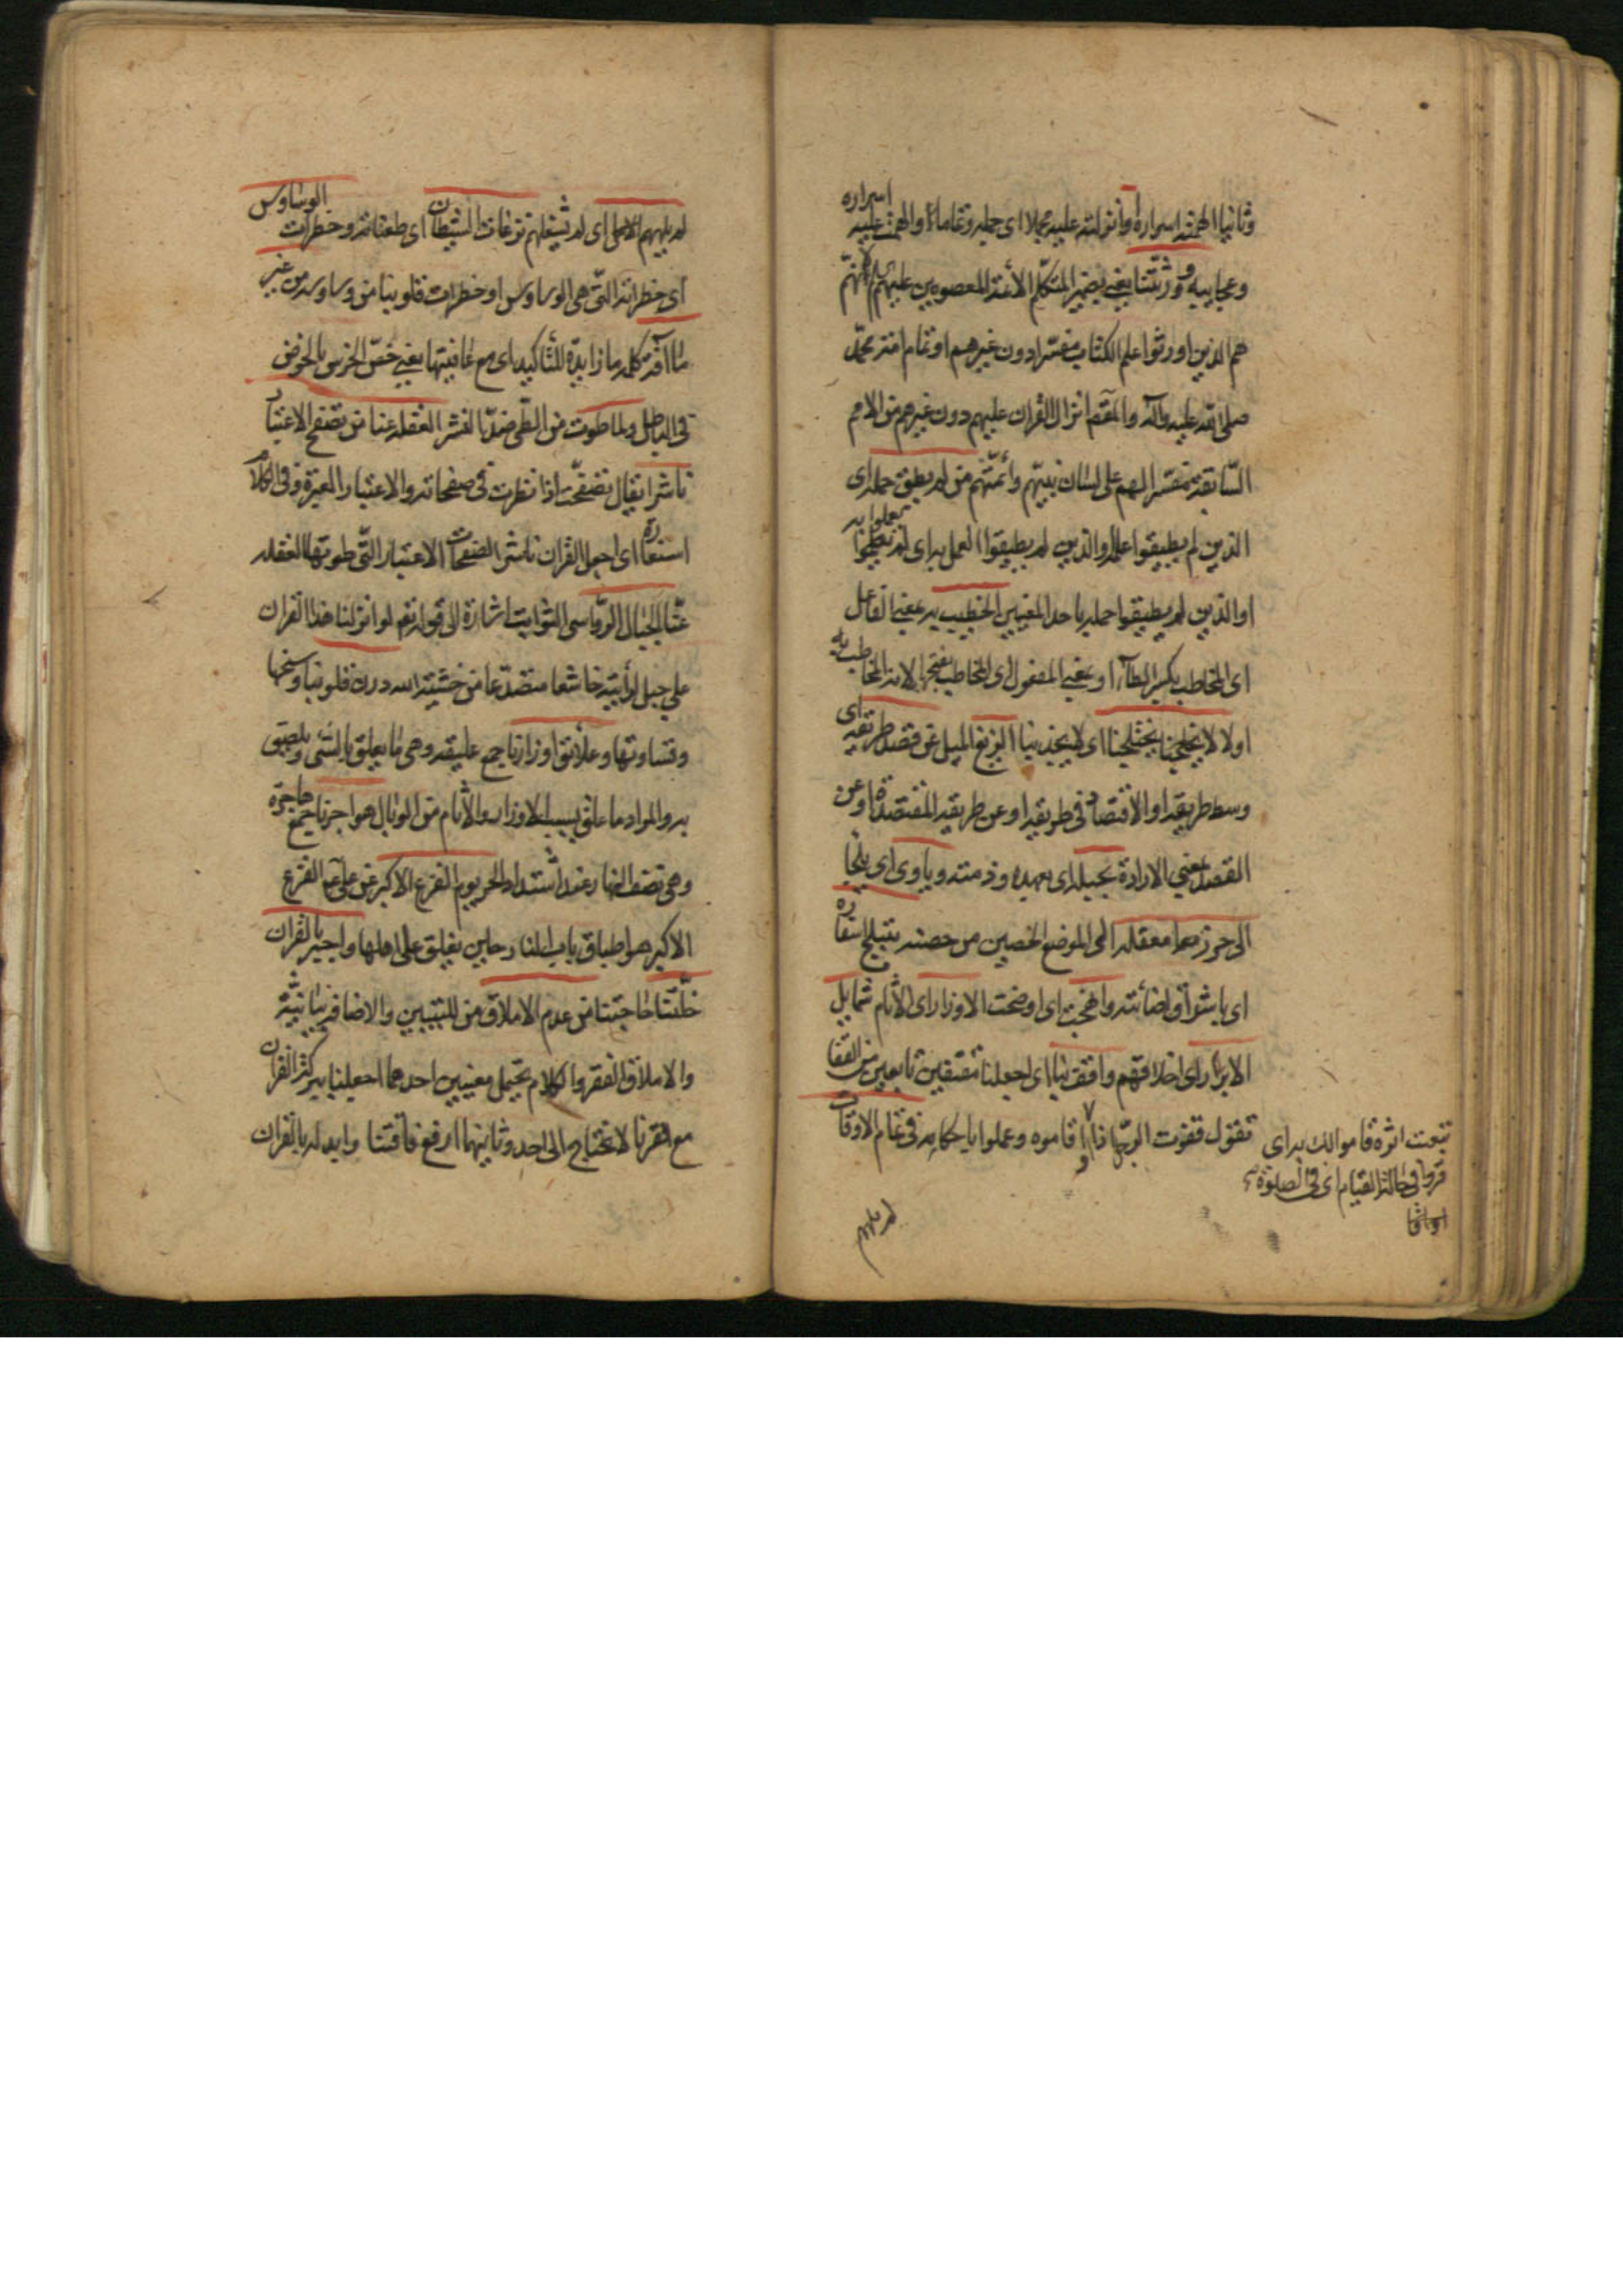 وثانيا الهمته اسراره وانزلته عليه مجملا اى جمله وتماما والهمت عليه اسراره
وعجايبه وورثتنا يعنى بضمير المتكلم الأئمة المعصومين عليهم السلام لانهم
هم الذين اورثوا علم الكتاب مفسرا دون غيرهم او تمام امته محمد
صلى الله عليه وآله والمقصم انزال القران عليهم دون غيرهم من الامم
السابقة مفسرا لهم على لسان نبيهم وائمتهم من لم يطق حمله اى
الذين لم يطيقوا علمه والذين لم يطيقوا العمل به اى لم يعملوا به
او الذين لم يطيقوا حمله باحد المعنيين الخطيب به بمعنى الفاعل
اى المخاطب بكسر الطاء او بمعنى المفعول اى المخاطب بفتحها لانه المخاطب به
اولا لا يختلجنا اى لا يجذبنا الزيغ الميل عن قصد طريقه اى
وسط طريقه او الاقتصاد فى طريقه او عن طريقه المقتصدة او عن
القصد بمعنى الارادة بحبله اى بعهده وذمته وياوى اى يلجا
الى حرز معقله الى الموضع الحصين من حصنه بتبلج اسفاره
اى باشراق اضائته وانهجت اى اوضحت الاوزار اى الآثام شمايل
الابرار اى اخلاقهم واقف بنا اى اجعلنا مقتفين تابعين من القفا
تقول قفوت الرجل اذا
تبعت اثره قاموا لك به اى
قروا فى حالة القيام اى فى الصلوة
او اقاموه وعملوا باحكامه فى تمام الاوقات
لم يلههم
لم يلههم الامل اى لم يشغلهم نزغات الشيطان اى طعناته وخطرات الوساوس
اى خطراته التى هى الوساوس او خطرات قلوبنا من وساوسه من غير
ما آفة كلمة ما زايدة للتاكيد اى مع عافيتها يعنى خص الخرس بالخوض
فى الباطل ولما طوت من الطى ضد النشر الغفلة عنا من تصفح الاعتبار
ناشرا يقال تصفحت اذا نظرت فى صفحاته والاعتبار العبرة وفى الكلام
استعارة اى اجعل القران ناشر الصفحات الاعتبار التى طوتها الغفلة
عنا الجبال الرواسى الثوابت اشارة الى قوله تعم لو انزلنا هذا القران
على جبل لرأيته خاشعا متصدعا من خشية الله درن قلوبنا وسخها
وقساوتها وعلائق اوزارنا جمع عليقه وهى ما يعلق بالشى ويلصق
به والمراد ما علق بسبب الاوزار والآثام من الوبال هواجرنا جمع هاجرة
وهى نصف النهار عند اشتداد الحر يوم الفزع الاكبر عن على ع الفزع
الاكبر هو اطباق باب النار حين يغلق على اهلها واجبر بالقران
خلتنا حاجتنا من عدم الاملاق من للتبيين والاضافة بيانية
والاملاق الفقر والكلام يحتمل معنيين احدهما اجعلنا ببركة القران
مع فقرنا لا نحتاج الى احد وثانيهما ارفع فاقتنا وابدله بالقران